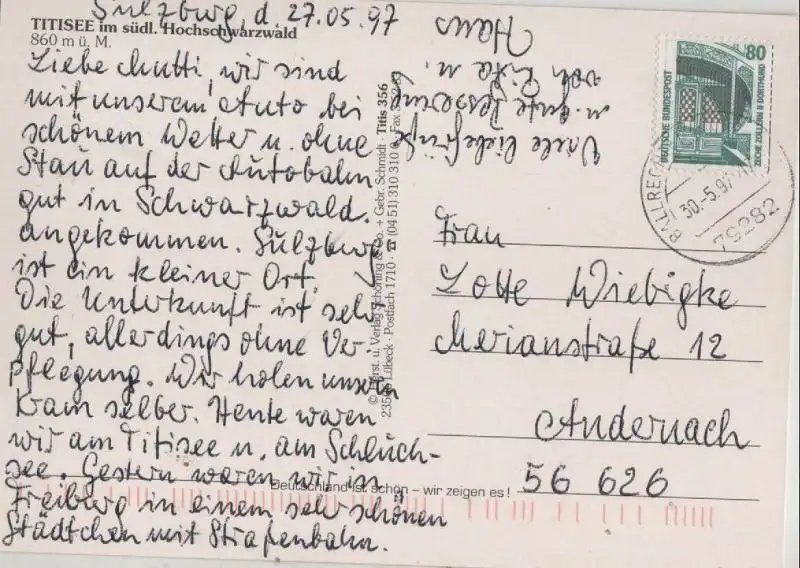 Sulzburg, d. 27.05.97
TITISEE im südl. Hochschwarzwald
860 m ü. M.
Liebe Mutti, wir sind
mit unserem Auto bei
schönem Wetter u. ohne
Stau auf der Autobahn
gut in Schwarzwald.
angekommen. Sulzburg
ist ein kleiner Ort.
Die Unterkunft ist sehr
gut, allerdings ohne Ver-
pflegung. Wir holen unsern
Kram selber. Heute waren
wir am Titisee u. am Schluch-
see. Gestern waren wir in
Freiburg in einem sehr schönen
Städtchen mit Straßenbahn.
Viele liebe Grüße
u. gute Besserung
von Rita u.
Hans
Schöning & Co. + Gebr. Schmidt · Titis 356
Lübeck · Postfach 1710 · ☎ (04 51) 310 310
Deutschland ist schön – wir zeigen es!
80
DEUTSCHE BUNDESPOST
ZECHE ZOLLERN II DORTMUND
30.-5.97
79282
Frau
Lotte Wiebigke
Merianstraße 12
Andernach
56 626